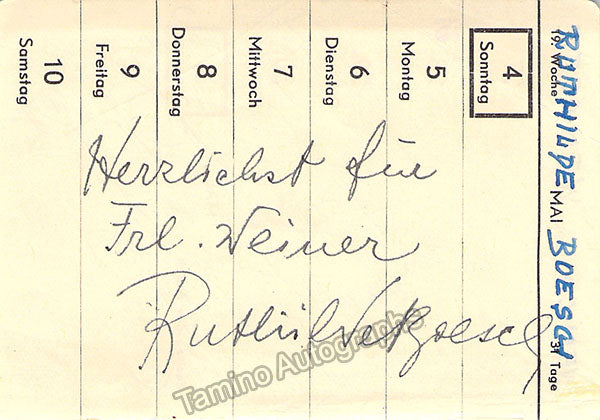 RUTHILDE BOESCH
19. Woche MAI 31 Tage
4 Sonntag
5 Montag
6 Dienstag
7 Mittwoch
8 Donnerstag
9 Freitag
10 Samstag
Herzlichst für
Frl. Weiner
Ruthilde Boesch
Tamino Autographs